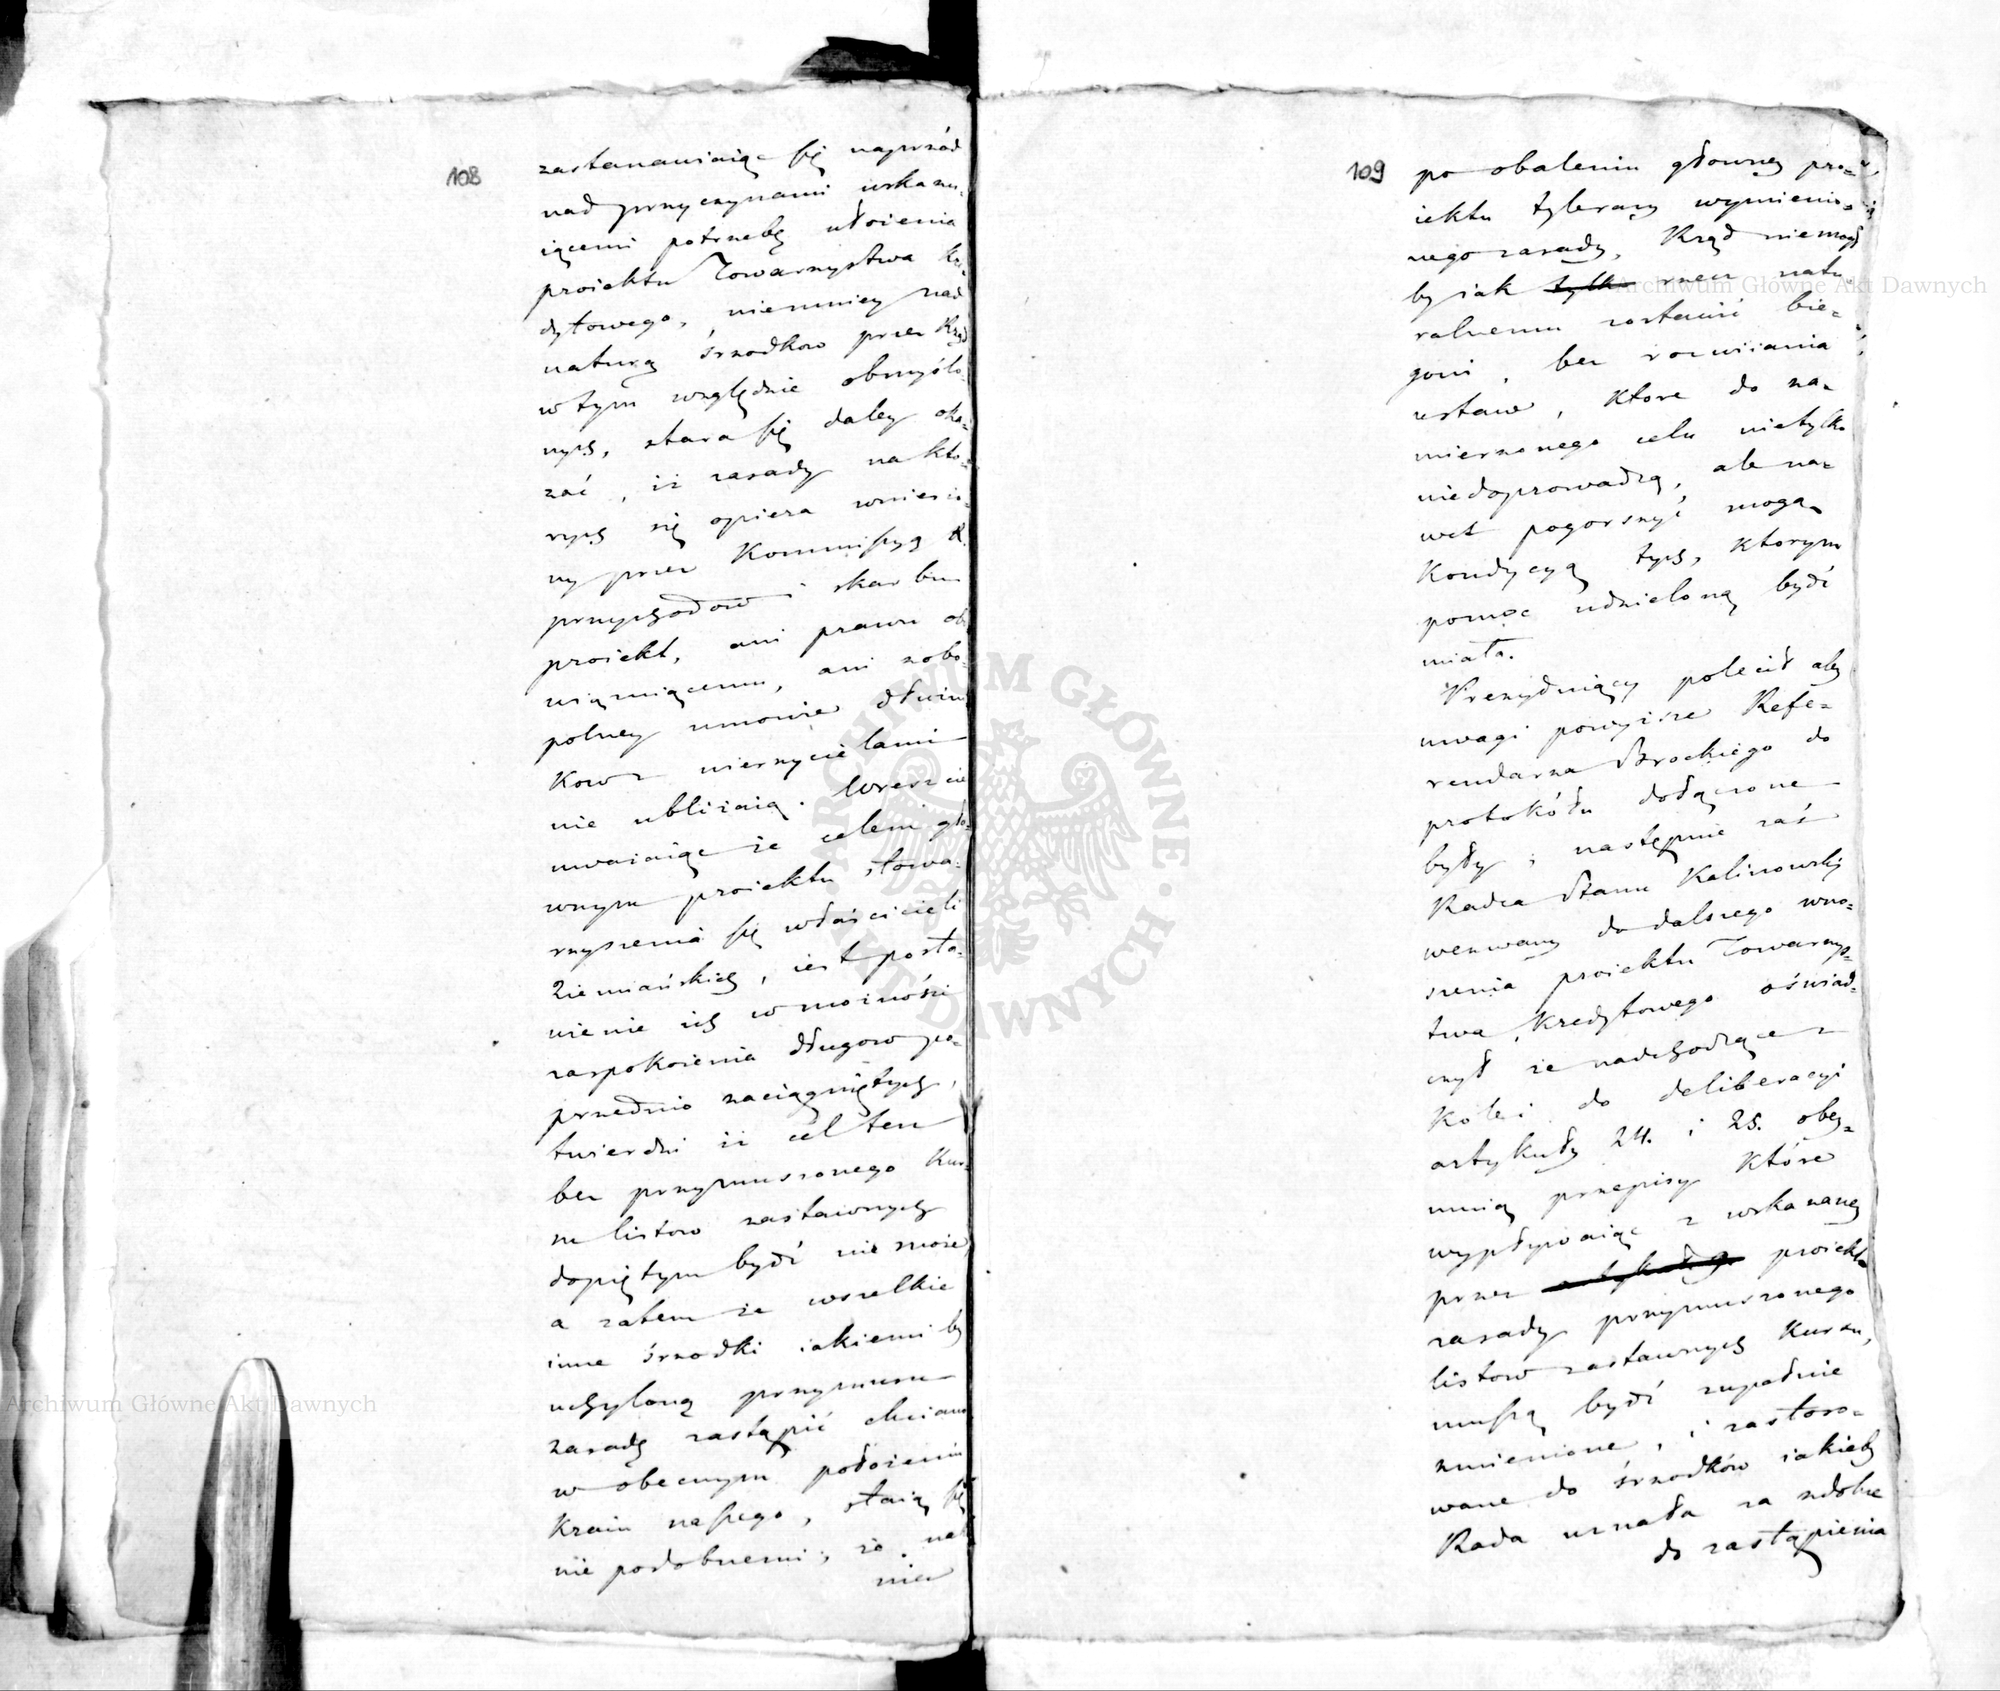 108
zastanawiaiąc się naprzód
nad przyczynami wskazu-
iącemi potrzebę ułożenia
proiektu Towarzystwa Kre-
dytowego, niemniey nad
naturą śrzodkow przez Rząd
w tym względzie obmyślo-
nych, stara się daley oka-
zać, iż zasady na któ-
rych się opiera wniesio-
ny przez Kommissyą R.
przychodow i skarbu
proiekt, ani prawu obo-
wiązuiącemu, ani dobro-
wolney umowie dłużni-
kow z wierzycielami
nie ubliżaią. Wreszcie
uważaiąc że celem głó-
wnym proiektu stowa-
rzyszenia się właścicieli
Ziemiańskich, iest posta-
wienie ich w możności
zaspokoienia długow po-
przednio zaciągniętych,
twierdzi iż cel ten
bez przymuszonego kur-
su listow zastawnych
dopiętym bydź nie może
a zatem że wszelkie
inne śrzodki iakiemi by
uchyloną przymusu
zasadę zastąpić chciano
w obecnym położeniu
Kraiu naszego, staią się
nie podobnemi; że
109
po obaleniu głowney pro-
iektu wymienio-
nego zasady, Rząd niemogł
by iak tylko rzecz natu-
ralnemu zostawić bie-
gowi, bez rozwiiania
ustaw, ktore do za-
mierzonego celu nietylko
niedoprowadzą, ale na-
wet pogorszyć mogą
Kondycyą tych, ktorym
pomoc udzieloną bydź
miała.
Prezyduiący polecił aby
uwagi powyższe Refe-
rendarza Brockiego do
protokółu dołączone
były; następnie zaś
Radca Stanu Kalinowski
wezwany do dalszego wno-
szenia proiektu Towarzys-
twa Kredytowego oświad-
czył że nadchodzące z
Kolei do deliberacyi
artykuły 24. i 25. obey-
muią przepisy które
wypływaiąc z wskazaney
przez artykuł 9. proiektu
zasady przymuszonego
listow zastawnych Kursu,
muszą bydź zupełnie
zmienione, i zastoso-
wane do śrzodków iakieby
Rada uznała za zdolne
do zastąpienia